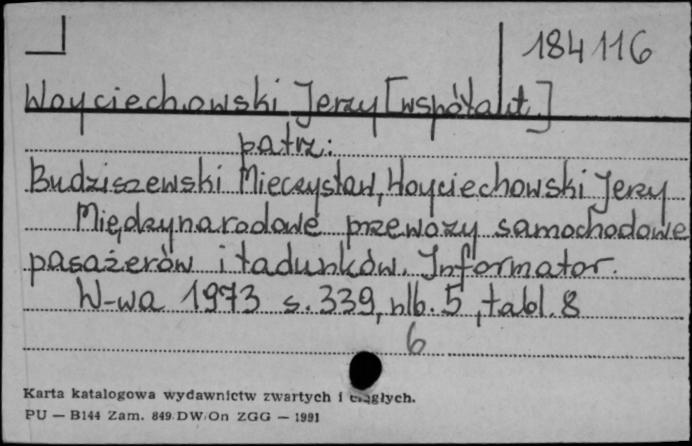 184 116
Woyciechowski Jerzy [współaut.]
patrz:
Budziszewski Mieczysław, Woyciechowski Jerzy
Międzynarodowe przewozy samochodowe
pasażerów i ładunków. Informator.
W-wa 1973 s. 339, nlb. 5, tabl. 8
6
Karta katalogowa wydawnictw zwartych i ciągłych.
PU — B144 Zam. 849 DW/On ZGG — 1991